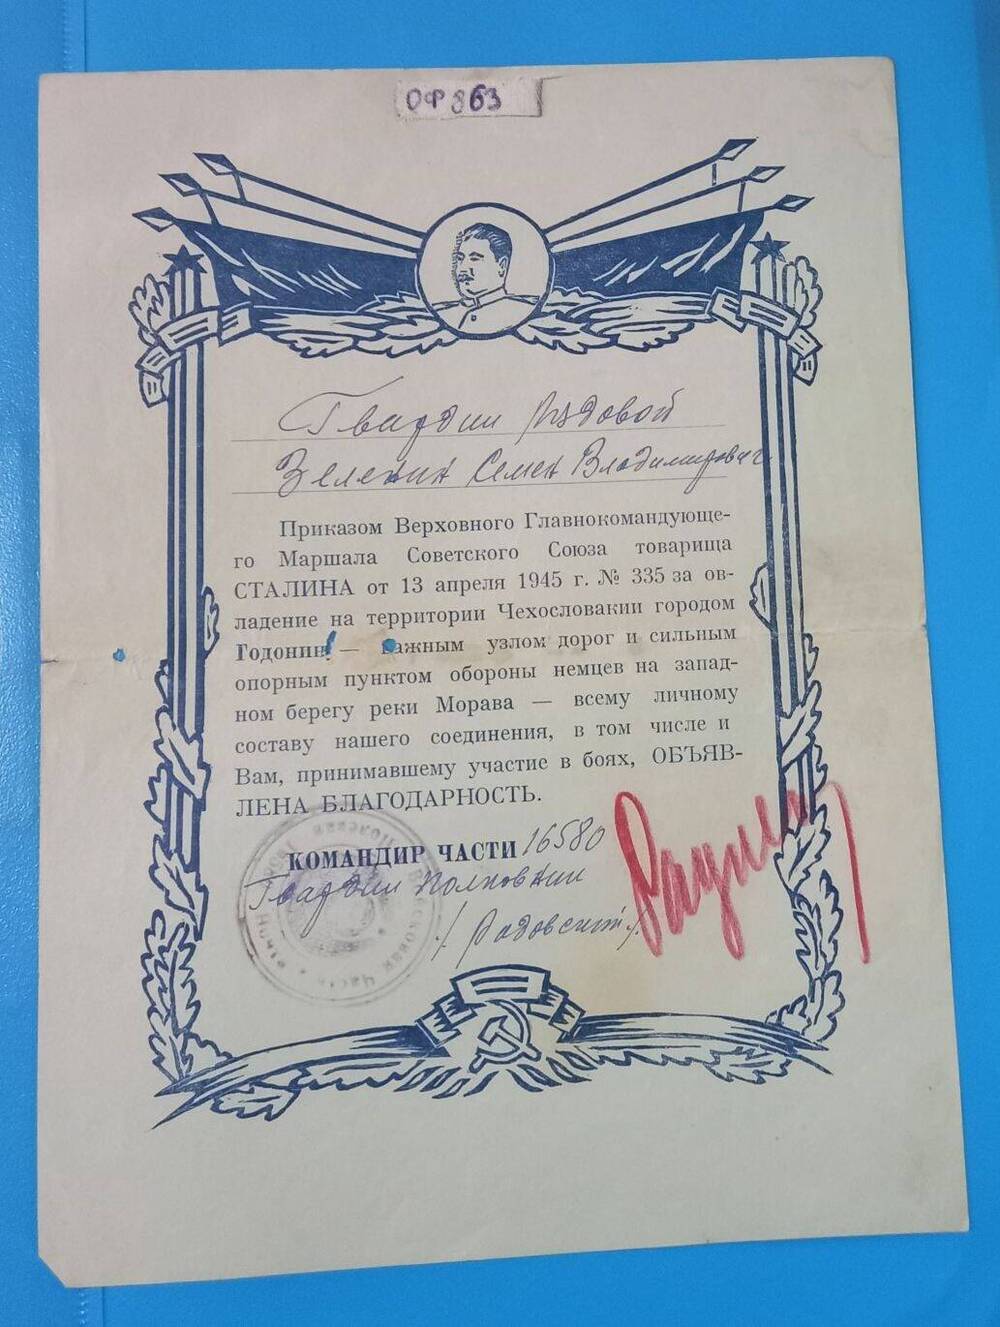 ОФ 863
Гвардии рядовой
Зеленин Семен Владимирович
Приказом Верховного Главнокомандующе-
го Маршала Советского Союза товарища
СТАЛИНА от 13 апреля 1945 г. № 335 за ов-
ладение на территории Чехословакии городом
Годонин — важным узлом дорог и сильным
опорным пунктом обороны немцев на запад-
ном берегу реки Морава — всему личному
составу нашего соединения, в том числе и
Вам, принимавшему участие в боях, ОБЪЯВ-
ЛЕНА БЛАГОДАРНОСТЬ.
КОМАНДИР ЧАСТИ 16580
Гвардии полковник
/Радовский/
Войсковая часть
Полевая